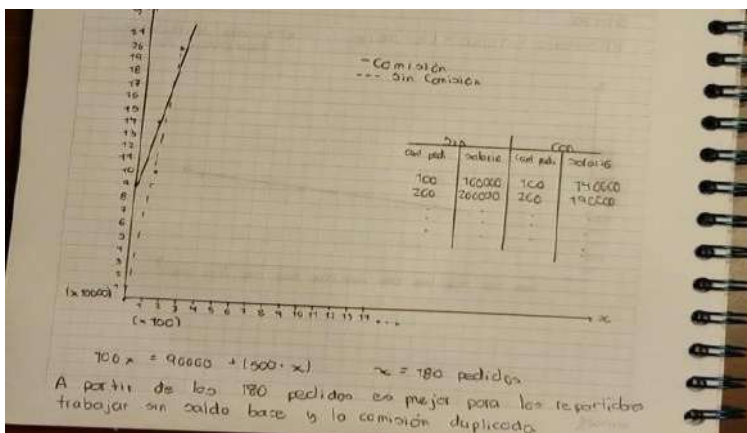 21
20
19
18
17
16
15
14
13
12
11
10
9
8
7
6
5
4
3
2
1
(x 10000)
1 2 3 4 5 6 7 8 9 10 11 12 13 14 ...
x
(x 100)
- Comisión
--- Sin Comisión
Sin Con
cant pedi. salario cant pedi. salario
100 100000 100 140000
200 200000 200 190000
100x = 90000 + (500 · x) x = 180 pedidos
A partir de los 180 pedidos es mejor para los repartidores
trabajar sin saldo base y la comisión duplicada